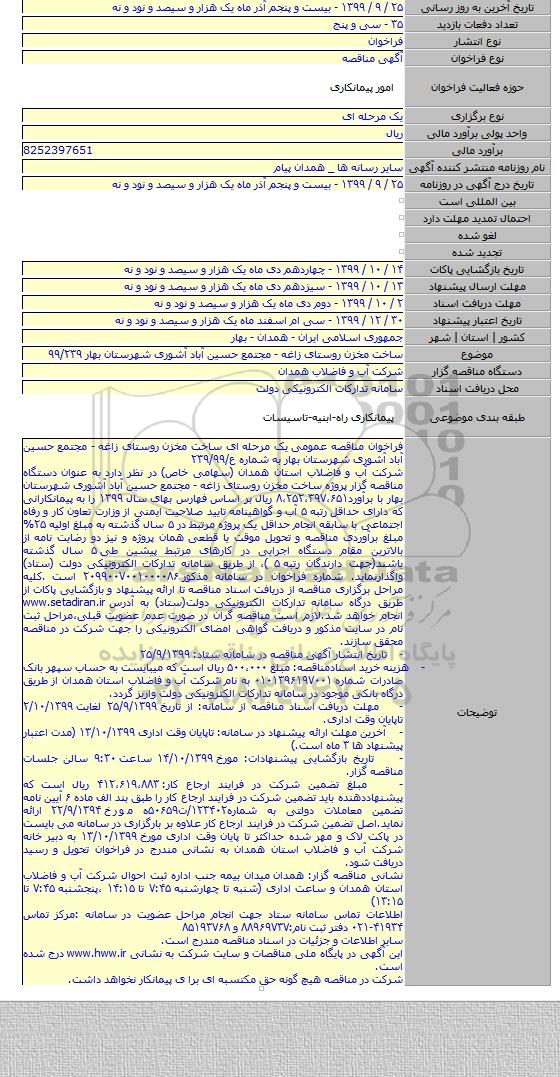 تاریخ آخرین به روز رسانی ۲۵ / ۹ / ۱۳۹۹ - بیست و پنجم آذر ماه یک هزار و سیصد و نود و نه
تعداد دفعات بازدید ۳۵ - سی و پنج
نوع انتشار فراخوان
نوع فراخوان آگهی مناقصه
حوزه فعالیت فراخوان امور پیمانکاری
نوع برگزاری یک مرحله ای
واحد پولی برآورد مالی ریال
برآورد مالی 8252397651
نام روزنامه منتشر کننده آگهی سایر رسانه ها _ همدان پیام
تاریخ درج آگهی در روزنامه ۲۵ / ۹ / ۱۳۹۹ - بیست و پنجم آذر ماه یک هزار و سیصد و نود و نه
بین المللی است
احتمال تمدید مهلت دارد
لغو شده
تجدید شده
تاریخ بازگشایی پاکات ۱۴ / ۱۰ / ۱۳۹۹ - چهاردهم دی ماه یک هزار و سیصد و نود و نه
مهلت ارسال پیشنهاد ۱۳ / ۱۰ / ۱۳۹۹ - سیزدهم دی ماه یک هزار و سیصد و نود و نه
مهلت دریافت اسناد ۲ / ۱۰ / ۱۳۹۹ - دوم دی ماه یک هزار و سیصد و نود و نه
تاریخ اعتبار پیشنهاد ۳۰ / ۱۲ / ۱۳۹۹ - سی ام اسفند ماه یک هزار و سیصد و نود و نه
کشور | استان | شهر جمهوری اسلامی ایران - همدان - بهار
موضوع ساخت مخزن روستای زاغه - مجتمع حسین آباد آشوری شهرستان بهار ۹۹/۲۳۹
دستگاه مناقصه گزار شرکت آب و فاضلاب همدان
محل دریافت اسناد سامانه تدارکات الکترونیکی دولت
طبقه بندی موضوعی پیمانکاری راه-ابنیه-تاسیسات
توضیحات
فراخوان مناقصه عمومی یک مرحله ای ساخت مخزن روستای زاغه - مجتمع حسین
آباد آشوری شهرستان بهار به شماره ع/۲۳۹/۹۹
شرکت آب و فاضلاب استان همدان (سهامی خاص) در نظر دارد به عنوان دستگاه
مناقصه گزار پروژه ساخت مخزن روستای زاغه - مجتمع حسین آباد آشوری شهرستان
بهار با برآورد۸،۲۵۲،۳۹۷،۶۵۱ ریال بر اساس فهارس بهای سال ۱۳۹۹ را به پیمانکارانی
که دارای حداقل رتبه ۵ آب و گواهینامه تایید صلاحیت ایمنی از وزارت تعاون کار و رفاه
اجتماعی با سابقه انجام حداقل یک پروژه مرتبط در ۵ سال گذشته به مبلغ اولیه ۲۵%
مبلغ برآوردی مناقصه و تحویل موقت یا قطعی همان پروژه و نیز دو رضایت نامه از
بالاترین مقام دستگاه اجرایی در کارهای مرتبط پیشین طی ۵ سال گذشته
باشند(جهت دارندگان رتبه ۵ )، از طریق سامانه تدارکات الکترونیکی دولت (ستاد)
واگذارنماید. شماره فراخوان در سامانه مذکور۲۰۹۹۰۰۷۰۰۱۰۰۰۰۸۶ است .کلیه
مراحل برگزاری مناقصه از دریافت اسناد مناقصه تا ارائه پیشنهاد و بازگشایی پاکات از
طریق درگاه سامانه تدارکات الکترونیکی دولت(ستاد) به آدرس www.setadiran.ir
انجام خواهد شد.لازم است مناقصه گران در صورت عدم عضویت قبلی،مراحل ثبت
نام در سایت مذکور و دریافت گواهی امضای الکترونیکی را جهت شرکت در مناقصه
محقق سازند.
- تاریخ انتشار آگهی مناقصه در سامانه ستاد: ۲۵/۹/۱۳۹۹
- هزینه خرید اسنادمناقصه: مبلغ ۵۰۰،۰۰۰ ریال است که میبایست به حساب سپهر بانک
صادرات شماره ۰۱۰۱۳۹۶۱۹۷۰۰۱ به نام شرکت آب و فاضلاب استان همدان از طریق
درگاه بانکی موجود در سامانه تدارکات الکترونیکی دولت واریز گردد.
- مهلت دریافت اسناد مناقصه از سامانه: از تاریخ ۲۵/۹/۱۳۹۹ لغایت ۲/۱۰/۱۳۹۹
تاپایان وقت اداری.
- آخرین مهلت ارائه پیشنهاد در سامانه: تاپایان وقت اداری ۱۳/۱۰/۱۳۹۹ (مدت اعتبار
پیشنهاد ها ۳ ماه است.)
- تاریخ بازگشایی پیشنهادات: مورخ ۱۴/۱۰/۱۳۹۹ ساعت ۹:۳۰ سالن جلسات
مناقصه گزار.
- مبلغ تضمین شرکت در فرایند ارجاع کار: ۴۱۲،۶۱۹،۸۸۳ ریال است که
پیشنهاددهنده باید تضمین شرکت در فرایند ارجاع کار را طبق بند الف ماده ۶ آیین نامه
تضمین معاملات دولتی به شماره۱۲۳۴۰۲/ت۵۰۶۵۹ه مورخ ۲۲/۹/۱۳۹۴ ارائه
نماید.اصل تضمین شرکت در فرایند ارجاع کار علاوه بر بارگزاری در سامانه می بایست
در پاکت لاک و مهر شده حداکثر تا پایان وقت اداری مورخ ۱۳/۱۰/۱۳۹۹ به دبیر خانه
شرکت آب و فاضلاب استان همدان به نشانی مندرج در فراخوان تحویل و رسید
دریافت شود.
نشانی مناقصه گزار: همدان میدان بیمه جنب اداره ثبت احوال شرکت آب و فاضلاب
استان همدان و ساعت اداری (شنبه تا چهارشنبه ۷:۴۵ تا ۱۴:۱۵ ،پنجشنبه ۷:۴۵ تا
۱۳:۱۵)
اطلاعات تماس سامانه ستاد جهت انجام مراحل عضویت در سامانه :مرکز تماس
۴۱۹۳۴-۰۲۱ دفتر ثبت نام:۸۸۹۶۹۷۳۷ و ۸۵۱۹۳۷۶۸
سایر اطلاعات و جزئیات در اسناد مناقصه مندرج است.
این آگهی در پایگاه ملی مناقصات و سایت شرکت به نشانی www.hww.ir درج شده
است.
شرکت در مناقصه هیچ گونه حق مکتسبه ای برا ی پیمانکار نخواهد داشت.